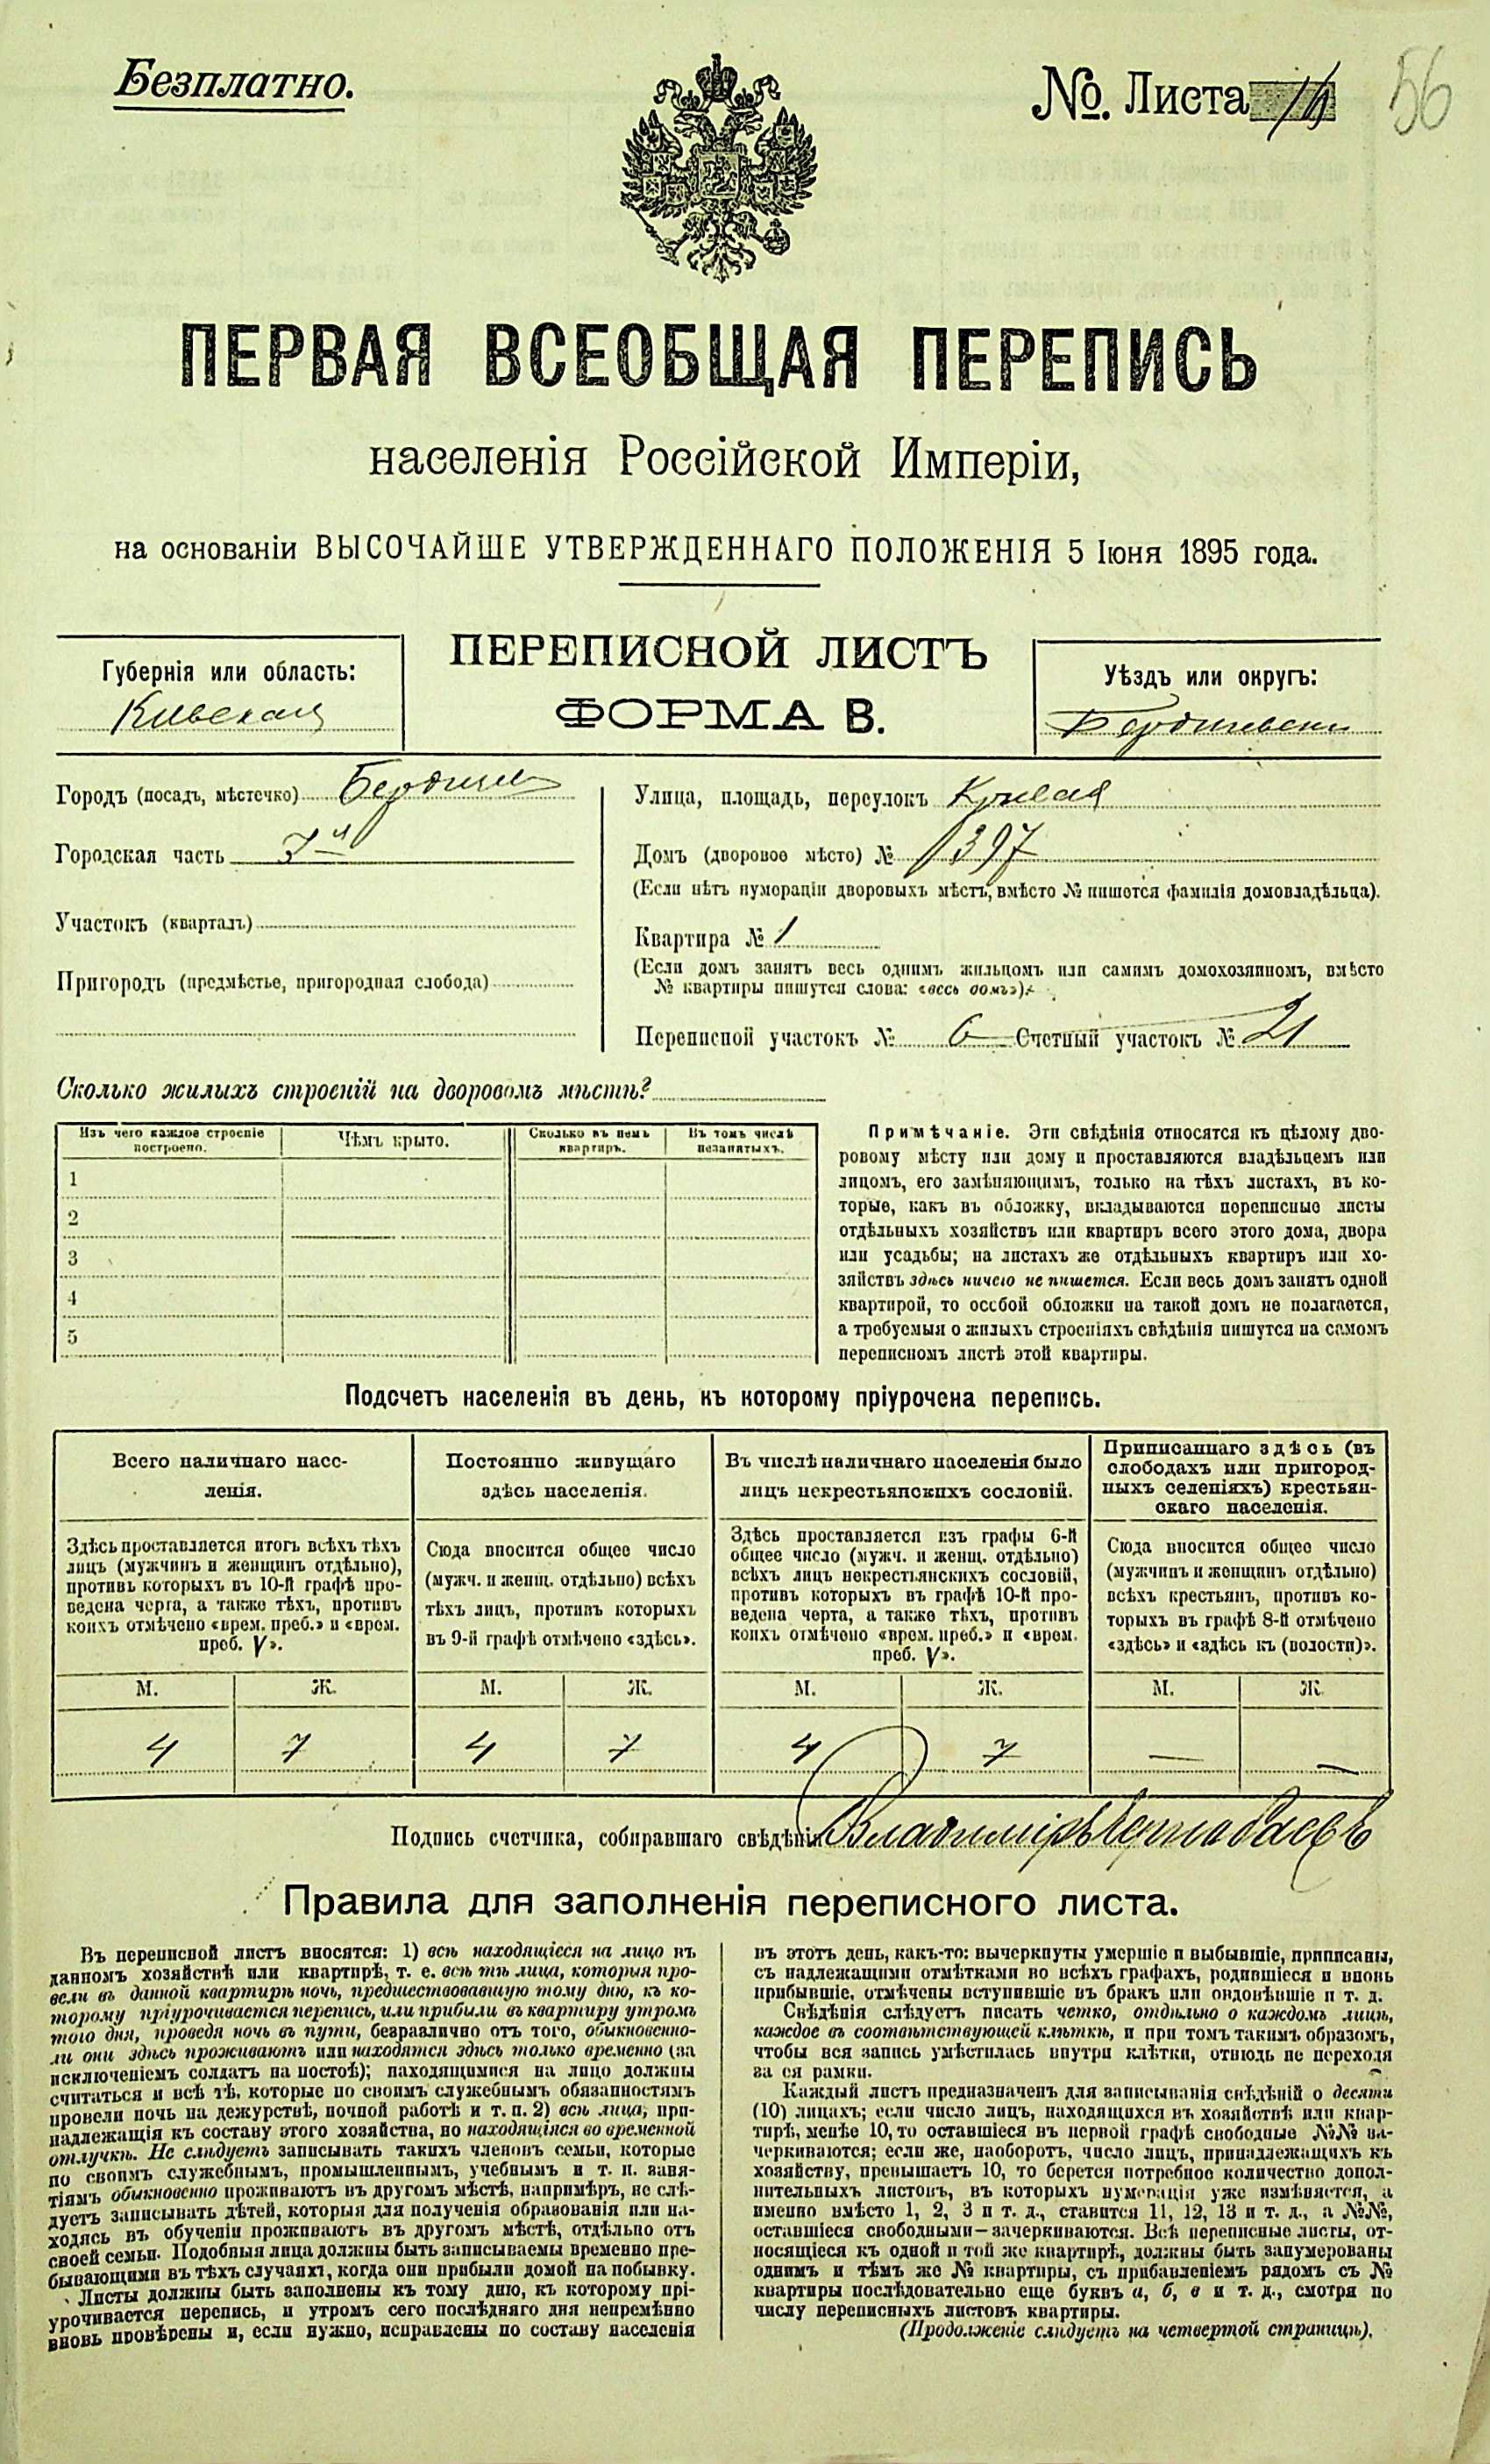 Безплатно.
№. Листа
56
ПЕРВАЯ ВСЕОБЩАЯ ПЕРЕПИСЬ
населенія Россійской Имперіи,
на основаніи ВЫСОЧАЙШЕ УТВЕРЖДЕННАГО ПОЛОЖЕНІЯ 5 Іюня 1895 года.
ПЕРЕПИСНОЙ ЛИСТЪ
ФОРМА В.
Губернія или область:
Киевская
Уѣздъ или округъ:
Бердичевскій
Городъ (посадъ, мѣстечко) Бердичев
Городская часть 7я
Участокъ (кварталъ)
Пригородъ (предмѣстье, пригородная слобода)
Улица, площадь, переулокъ Кривая
Домъ (дворовое мѣсто) № 1397
(Если нѣтъ нумораціи дворовыхъ мѣстъ, вмѣсто № пишется фамилія домовладѣльца).
Квартира № 1
(Если домъ занятъ весь однимъ жильцомъ или самимъ домохозяиномъ, вмѣсто
№ квартиры пишутся слова: «весь домъ»).
Переписной участокъ № 6 Счетный участокъ № 21
Сколько жилыхъ строеній на дворовомъ мѣстѣ?
Изъ чего каждое строеніе построено. Чѣмъ крыто. Сколько въ немъ квартиръ. Въ томъ числѣ незанятыхъ.
1
2
3
4
5
Примѣчаніе. Эти свѣдѣнія относятся къ цѣлому дво-
ровому мѣсту или дому и проставляются владѣльцемъ или
лицомъ, его замѣняющимъ, только на тѣхъ листахъ, въ ко-
торые, какъ въ обложку, вкладываются переписные листы
отдѣльныхъ хозяйствъ или квартиръ всего этого дома, двора
или усадьбы; на листахъ же отдѣльныхъ квартиръ или хо-
зяйствъ здѣсь ничего не пишется. Если весь домъ занятъ одной
квартирой, то особой обложки на такой домъ не полагается,
а требуемыя о жилыхъ строеніяхъ свѣдѣнія пишутся на самомъ
переписномъ листѣ этой квартиры.
Подсчетъ населенія въ день, къ которому пріурочена перепись.
Всего наличнаго насе-
ленія.
Здѣсь проставляется итогъ всѣхъ тѣхъ
лицъ (мужчинъ и женщинъ отдѣльно),
противъ которыхъ въ 10-й графѣ про-
ведена черта, а также тѣхъ, противъ
коихъ отмѣчено «врем. преб.» и «врем.
преб. V».
Постоянно живущаго
здѣсь населенія.
Сюда вносится общее число
(мужч. и женщ. отдѣльно) всѣхъ
тѣхъ лицъ, противъ которыхъ
въ 9-й графѣ отмѣчено «здѣсь».
Въ числѣ наличнаго населенія было
лицъ некрестьянскихъ сословій.
Здѣсь проставляется изъ графы 6-й
общее число (мужч. и женщ. отдѣльно)
всѣхъ лицъ некрестьянскихъ сословій,
противъ которыхъ въ графѣ 10-й про-
ведена черта, а также тѣхъ, противъ
коихъ отмѣчено «врем. преб.» и «врем.
преб. V».
Приписаннаго здѣсь (въ
слободахъ или пригород-
ныхъ селеніяхъ) крестьян-
скаго населенія.
Сюда вносится общее число
(мужчинъ и женщинъ отдѣльно)
всѣхъ крестьянъ, противъ ко-
торыхъ въ графѣ 8-й отмѣчено
«здѣсь» и «здѣсь къ (волости)».
М. Ж. М. Ж. М. Ж. М. Ж.
4 7 4 7 4 7 — —
Подпись счетчика, собиравшаго свѣдѣнія Владиміръ
Правила для заполненія переписного листа.
Въ переписной листъ вносятся: 1) всѣ находящіеся на лицо въ
данномъ хозяйствѣ или квартирѣ, т. е. всѣ тѣ лица, которыя про-
вели въ данной квартирѣ ночь, предшествовавшую тому дню, къ ко-
торому пріурочивается перепись, или прибыли въ квартиру утромъ
того дня, проведя ночь въ пути, безразлично отъ того, обыкновенно-
ли они здѣсь проживаютъ или находятся здѣсь только временно (за
исключеніемъ солдатъ на постоѣ); находящимися на лицо должны
считаться и всѣ тѣ, которые по своимъ служебнымъ обязанностямъ
провели ночь на дежурствѣ, ночной работѣ и т. п. 2) всѣ лица, при-
надлежащія къ составу этого хозяйства, но находящіяся во временной
отлучкѣ. Не слѣдуетъ записывать такихъ членовъ семьи, которые
по своимъ служебнымъ, промышленнымъ, учебнымъ и т. п. заня-
тіямъ обыкновенно проживаютъ въ другомъ мѣстѣ, напримѣръ, не слѣ-
дуетъ записывать дѣтей, которыя для полученія образованія или на-
ходясь въ обученіи проживаютъ въ другомъ мѣстѣ, отдѣльно отъ
своей семьи. Подобныя лица должны быть записываемы временно пре-
бывающими въ тѣхъ случаяхъ, когда они прибыли домой на побывку.
Листы должны быть заполнены къ тому дню, къ которому прі-
урочивается перепись, и утромъ сего послѣдняго дня непремѣнно
вновь провѣрены и, если нужно, исправлены по составу населенія
въ этотъ день, какъ-то: вычеркнуты умершіе и выбывшіе, приписаны,
съ надлежащими отмѣтками во всѣхъ графахъ, родившіеся и вновь
прибывшіе, отмѣчены вступившіе въ бракъ или овдовѣвшіе и т. д.
Свѣдѣнія слѣдуетъ писать четко, отдѣльно о каждомъ лицѣ,
каждое въ соотвѣтствующей клѣткѣ, и при томъ такимъ образомъ,
чтобы вся запись умѣстилась внутри клѣтки, отнюдь не переходя
за ея рамки.
Каждый листъ предназначенъ для записыванія свѣдѣній о десяти
(10) лицахъ; если число лицъ, находящихся въ хозяйствѣ или квар-
тирѣ, менѣе 10, то оставшіеся въ первой графѣ свободные №№ за-
черкиваются; если же, наоборотъ, число лицъ, принадлежащихъ къ
хозяйству, превышаетъ 10, то берется потребное количество допол-
нительныхъ листовъ, въ которыхъ нумерація уже измѣняется, а
именно вмѣсто 1, 2, 3 и т. д., ставится 11, 12, 13 и т. д., а №№,
оставшіеся свободными—зачеркиваются. Всѣ переписные листы, от-
носящіеся къ одной и той же квартирѣ, должны быть занумерованы
однимъ и тѣмъ же № квартиры, съ прибавленіемъ рядомъ съ №
квартиры послѣдовательно еще буквъ а, б, в и т. д., смотря по
числу переписныхъ листовъ квартиры.
(Продолженіе слѣдуетъ на четвертой страницѣ).